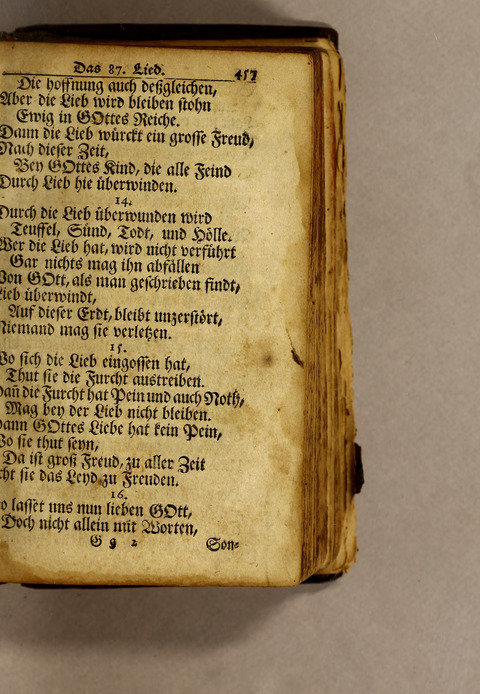 Das 87. Lied. 457
Die hoffnung auch deßgleichen,
Aber die Lieb wird bleiben stohn
Ewig in GOttes Reiche.
Dann die Lieb würckt ein grosse Freud,
Nach dieser Zeit,
Bey GOttes Kind, die alle Feind
Durch Lieb hie überwinden.
14.
Durch die Lieb überwunden wird
Teuffel, Sünd, Todt, und Hölle.
Wer die Lieb hat, wird nicht verführt
Gar nichts mag ihn abfällen
Von GOtt, als man geschrieben findt,
Lieb überwindt,
Auf dieser Erdt, bleibt unzerstört,
Niemand mag sie verletzen.
15.
Wo sich die Lieb eingossen hat,
Thut sie die Furcht austreiben.
Dañ die Furcht hat Pein und auch Noth,
Mag bey der Lieb nicht bleiben.
Dann GOttes Liebe hat kein Pein,
Wo sie thut seyn,
Da ist groß Freud, zu aller Zeit
cht sie das Leyd zu Freuden.
16.
o lasset uns nun lieben GOtt,
Doch nicht allein mit Worten,
G g 2 Son-